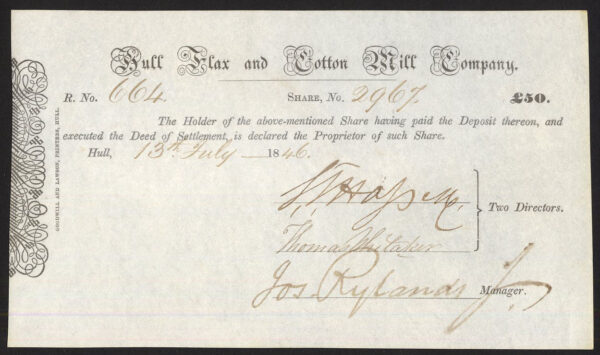 Hull Flax and Cotton Mill Company.
R. No. 664. SHARE, No. 2967. £50.
The Holder of the above-mentioned Share having paid the Deposit thereon, and
executed the Deed of Settlement, is declared the Proprietor of such Share.
Hull, 13th July 1846.
Two Directors.
Thomas Whitaker
Jos Rylands Jr Manager.
GOODWILL AND LAWSON, PRINTERS, HULL.